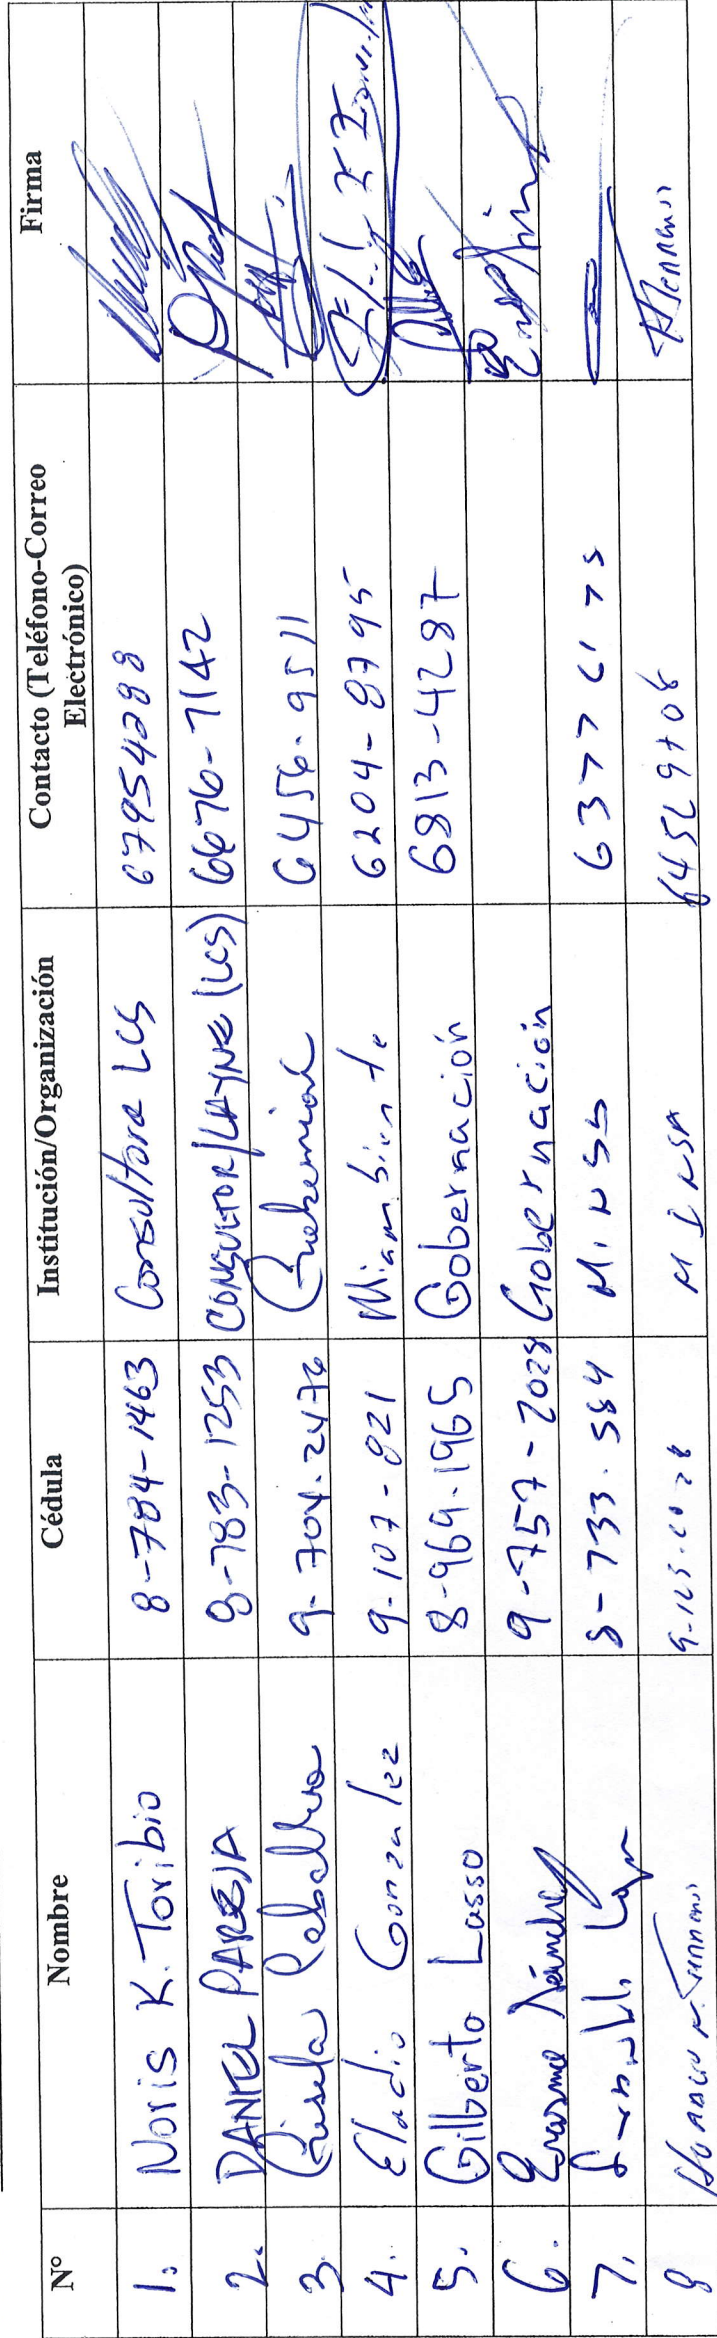 N° Nombre Cédula Institución/Organización Contacto (Teléfono-Correo Electrónico) Firma
1. Noris K. Toribio 8-784-1463 Consultora LCS 67954288
2. DANIEL PAREJA 8-783-1253 CONSULTOR/LAYNE (LCS) 6676-7142
3. Gisela Caballero 9-704-2476 6456-9511
4. Eladio Gonzalez 9-107-821 Miambiente 6204-8795
5. Gilberto Lasso 8-969-1965 Gobernación 6813-4287
6. Erasmo Sánchez 9-757-2028 Gobernación
7. 8-733-554 MINSA
8 MINSA